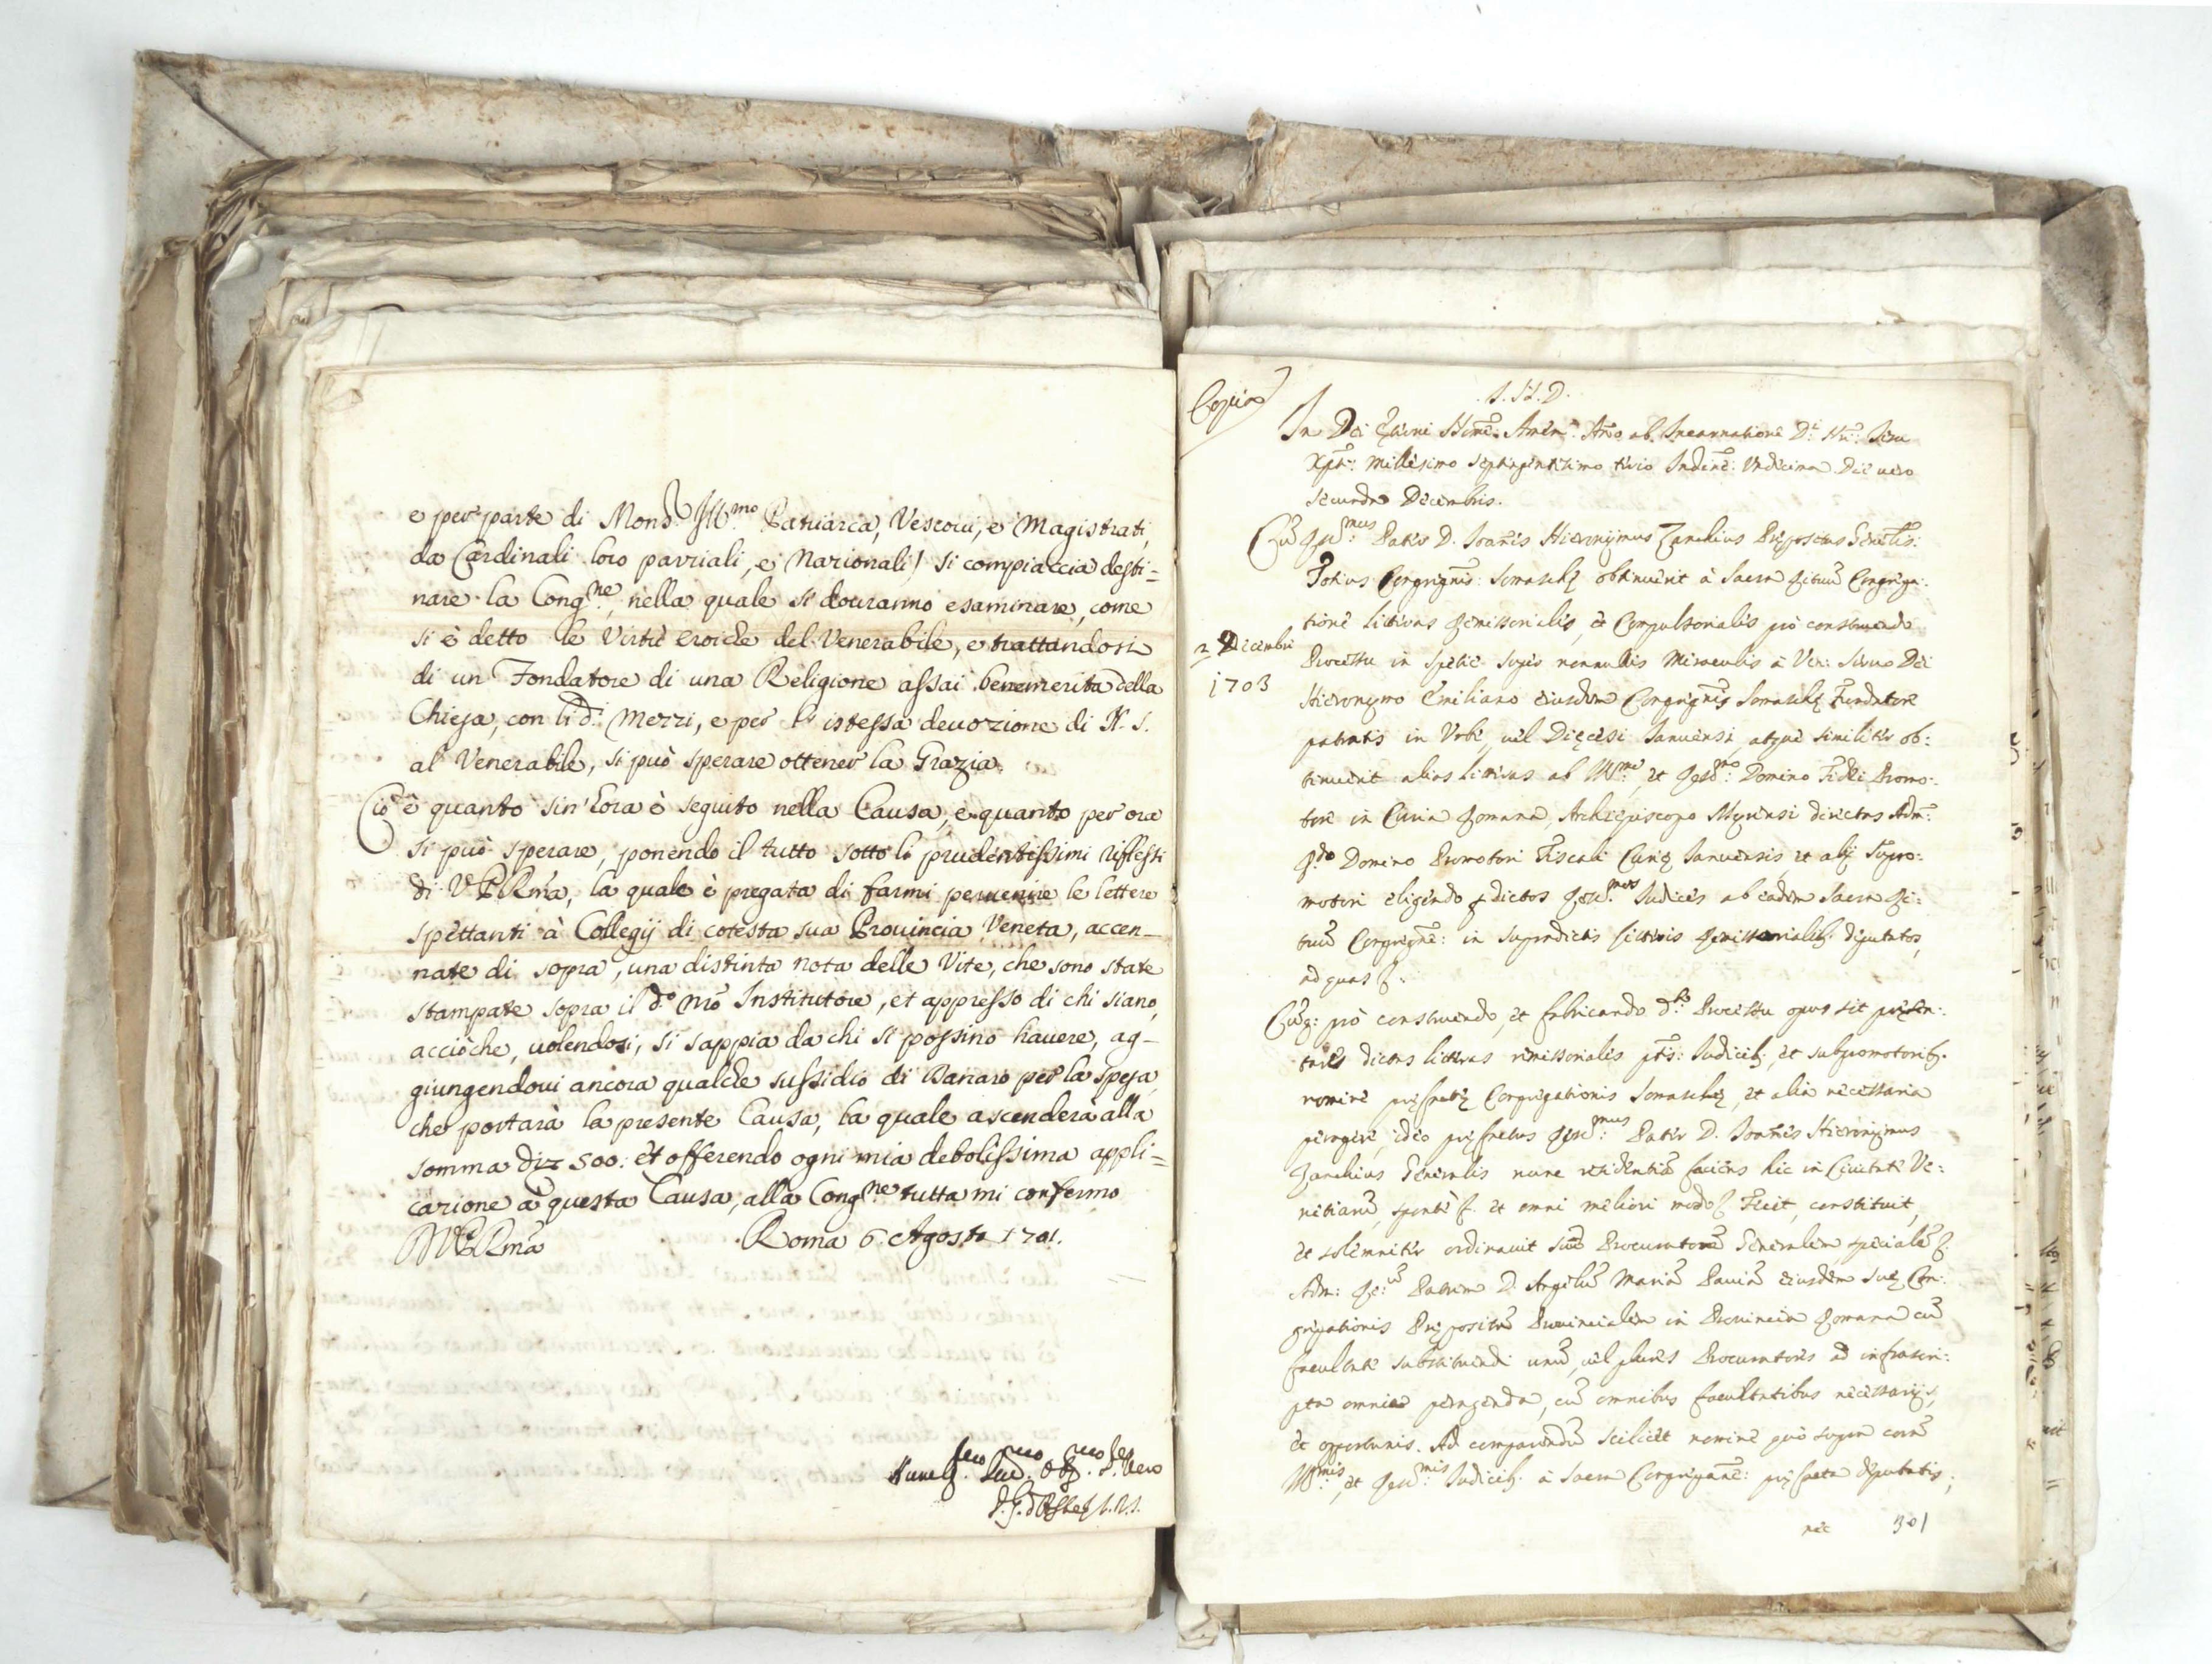 e per parte di Mons.r Ill.mo Patriarca, Vescovi, e Magistrati,
da Cardinali loro parziali, e Nazionali / si compiaccia desti=
nare la Cong.ne, nella quale si douranno esaminare, come
si è detto le Virtù eroiche del Venerabile, e trattandosi
di un Fondatore di una Religione assai benemerita della
Chiesa, con li d.i Mezzi, e per la istessa deuozione di N. S.
al Venerabile, si può sperare ottener la Grazia.
Ciò è quanto sin'hora è seguito nella Causa, e quanto per ora
si può sperare, ponendo il tutto sotto li prudentissimi riflessi
di V. P. Rma, la quale è pregata di farmi peruenire le lettere
spettanti à Collegij di cotesta sua Prouincia Veneta, accen=
nate di sopra, una distinta nota delle Vite, che sono state
stampate sopra il d.o Nrõ Institutore, et appresso di chi siano,
acciòche, uolendosi, si sappia da chi si possino hauere, ag=
giungendoui ancora qualche sussidio di danaro per la spesa,
che portarà la presente Causa, la quale ascenderà alla
somma di 500: et offerendo ogni mia debolissima appli=
cazione à questa Causa, alla Cong.ne tutta mi confermo
D V. P. Rma Roma 6. Agosto 1701.
Copia
I. N. D.
In Dei Æterni Nomē. Amen. Anno ab Incarnatione D.i Nri. Jesu
Xpti: Millesimo septingentesimo tertio Indine: Vndecima Die uero
secunda Decembris.
Cũ Reu.mus Pater D. Joannes Hieronymus Zanchius Præpositus Gñalis
Totius Congregnis: Somaschæ obtinuerit à Sacra Rituũ Congrega:
tione litteras Remissoriales, et Compulsoriales pro construendo
2 Decembri
1703
Processu in specie super nonnullis Miraculis à Ven: Seruo Dei
Hieronymo Emiliano eiusdem Congregñis Somaschæ Fundatore
patratis in Vrbe, uel Diœcesi Januensi, atque similiter ob:
tinuerit alias litteras ab Ill.mo, et Reud.mo Domino Fidei Promo:
tore in Curia Romana, Archiepiscopo Myrensi directas Adm:
R.do Domino Promotori Fiscali Curiæ Januensis, et alij Subpro:
motori eligendo p dictos Reu.mos Judices ab eadem Sacra Ri:
tuũ Congregne: in supradictis litteris Remissorialib. deputatos,
ad quas &.
Cũq: pro construendo, et fabricando d.to Processu opus sit præsen:
tare dictas litteras remissoriales ptis: Judicib., et subpromotorib.
nomine præfatæ Congregationis Somaschæ, et alia necessaria
peragere, ideo præfatus Reu.mus Pater D. Joannes Hieronymus
Zanchius Generalis nunc residentiã faciens hic in Ciuitate Ve:
netiarũ, sponte &. et omni meliori modo & Fecit, constituit,
et solemniter ordinauit suũ Procuratorẽ Generalem specialẽ &.
Adm: Re: Patrem D. Angelũ Mariã Pauiã eiusdem suæ Con:
gregationis Præpositũ Prouincialem in Prouincia Romana cũ
facultate substituendi unũ, uel plures Procuratores ad infrascri:
pta omnia peragenda, cũ omnibus facultatibus necessarijs,
et opportunis. Ad comparendũ scilicet nomine quo supra corã
Ill.mis, et Reu.mis Judicib. à Sacra Congregañe: præfata deputatis,
nec 301